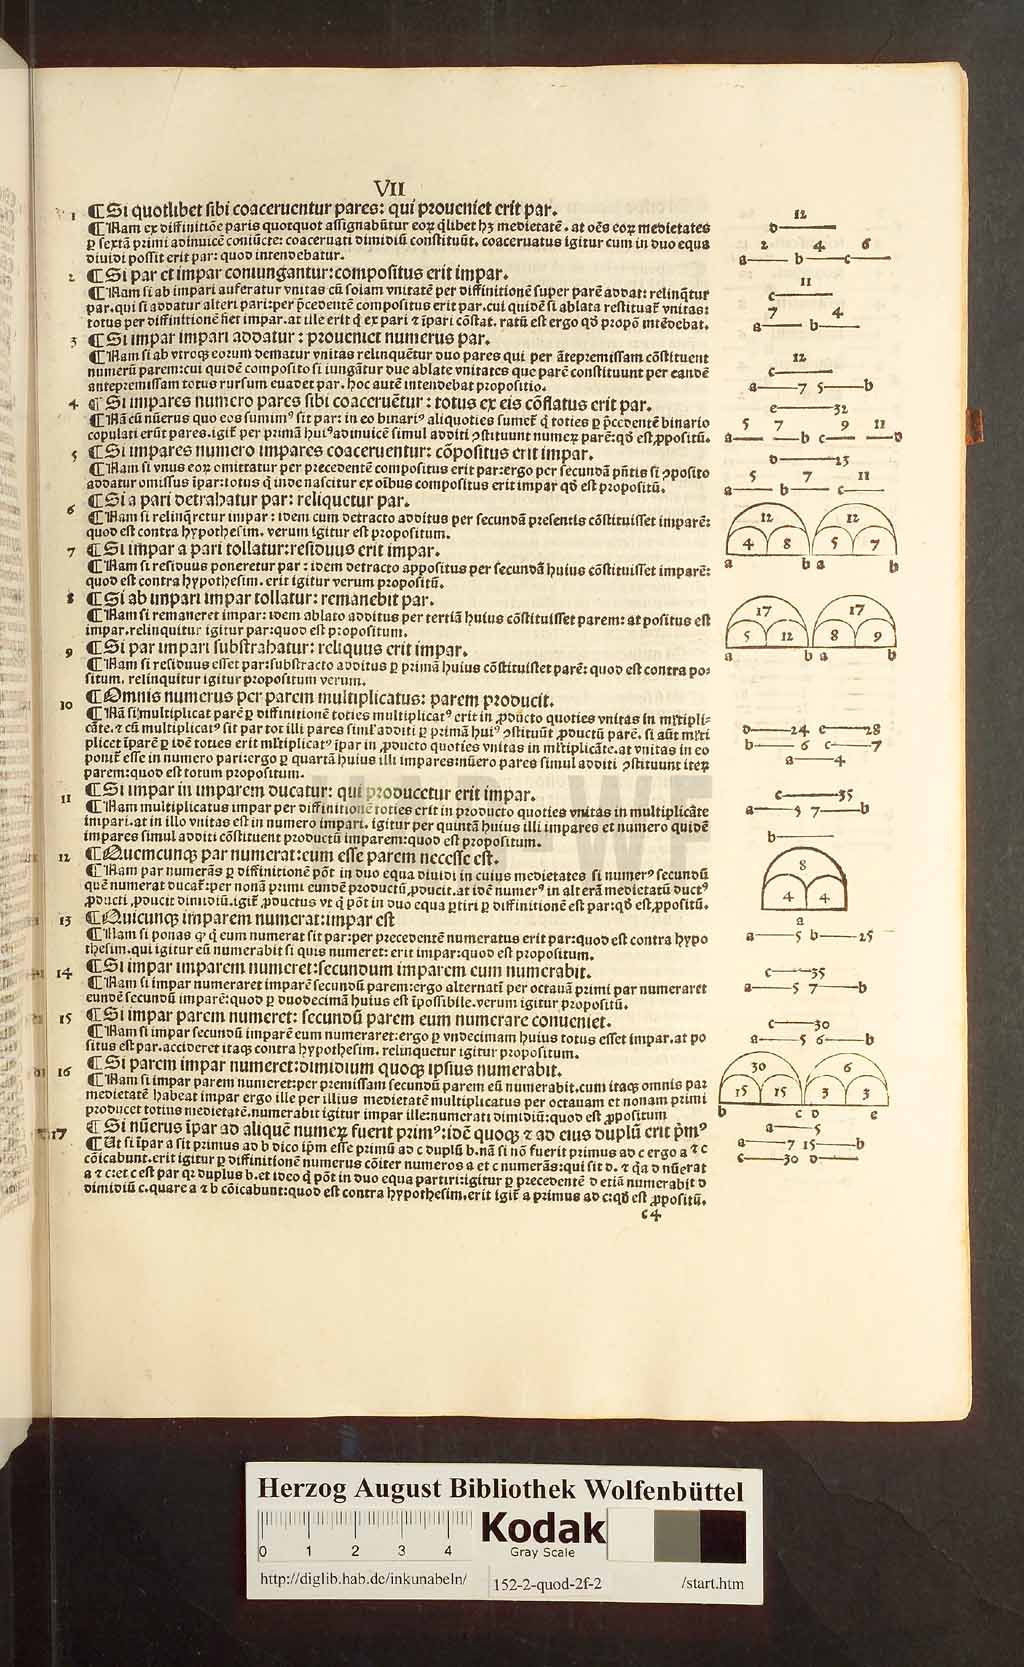 VII
1 ¶Si quotlibet sibi coaceruentur pares: qui proueniet erit par.
¶Nam ex diffinitiõe paris quotquot assignabũtur eoꝝ q̃libet hꝫ medietatẽ. at oẽs eoꝝ medietates
ꝑ sextã primi adinuicẽ coniũcte: coaceruati dimidiũ constituũt. coaceruatus igitur cum in duo equa
diuidi possit erit par: quod intendebatur.
2 ¶Si par et impar coniungantur: compositus erit impar.
¶Nam si ab impari auferatur vnitas cũ solam vnitatẽ per diffinitionẽ super parẽ addat: relinq̃tur
par. qui si addatur alteri pari: per p̃cedentẽ compositus erit par. cui quidẽ si ablata restituat᷑ vnitas:
totus per diffinitionẽ fiet impar. at ille erit q̃ ex pari ⁊ ĩpari cõstat. ratũ est ergo qđ propõ intẽdebat.
3 ¶Si impar impari addatur: proueniet numerus par.
¶Nam si ab vtroqꝫ eorum dematur vnitas relinquẽtur duo pares qui per ãtepremissam cõstituent
numerũ parem: cui quidẽ composito si iungãtur due ablate vnitates que parẽ constituunt per eandẽ
antepremissam totus rursum euadet par. hoc autẽ intendebat propositio.
4 ¶Si impares numero pares sibi coaceruẽtur: totus ex eis cõflatus erit par.
¶Nã cũ nũerus quo eos sumimꝰ sit par: in eo binariꝰ aliquoties sumet᷑ q̃ toties ꝑ p̃cedentẽ binario
copulati erũt pares. igit᷑ per primã huiꝰ adinuicẽ simul additi ꝯstituunt numeꝝ parẽ: qđ est ꝓpositũ.
5 ¶Si impares numero impares coaceruentur: cõpositus erit impar.
¶Nam si vnus eoꝝ omittatur per precedentẽ compositus erit par: ergo per secundã p̃ntis si ꝯposito
addatur omissus ĩpar: totus q̃ inde nascitur ex oĩbus compositus erit impar qđ est propositũ.
6 ¶Si a pari detrahatur par: reliquetur par.
¶Nam si relinq̃retur impar: idem cum detracto additus per secundam presentis cõstituisset imparẽ:
quod est contra hypothesim. verum igitur est propositum.
7 ¶Si impar a pari tollatur: residuus erit impar.
¶Nam si residuus poneretur par: idem detracto appositus per secundã huius cõstituisset imparẽ:
quod est contra hypothesim. erit igitur verum propositũ.
8 ¶Si ab impari impar tollatur: remanebit par.
¶Nam si remaneret impar: idem ablato additus per tertiã huius cõstituisset parem: at positus est
impar. relinquitur igitur par: quod est propositum.
9 ¶Si par impari substrahatur: reliquus erit impar.
¶Nam si residuus esset par: substracto additus ꝑ primã huius cõstituisset parẽ: quod est contra po⸗
situm. relinquitur igitur propositum verum.
10 ¶Omnis numerus per parem multiplicatus: parem producit.
¶Nã si multiplicat parẽ ꝑ diffinitionẽ toties multiplicatꝰ erit in ꝓducto quoties vnitas in ml̃tipli⸗
cãte. ⁊ cũ multiplicatꝰ sit par tot illi pares siml̃ additi ꝑ primã huiꝰ ꝯstituũt ꝓductũ parẽ. si aũt ml̃ti
plicet ĩparẽ ꝑ idẽ toties erit ml̃tiplicatꝰ ĩpar in ꝓducto quoties vnitas in ml̃tiplicãte. at vnitas in eo
ponit᷑ esse in numero pari: ergo ꝑ quartã huius illi impares: nũero pares simul additi ꝯstituunt iteꝝ
parem: quod est totum propositum.
11 ¶Si impar in imparem ducatur: qui producetur erit impar.
¶Nam multiplicatus impar per diffinitionẽ toties erit in producto quoties vnitas in multiplicãte
impari. at in illo vnitas est in numero impari. igitur per quintã huius illi impares et numero quidẽ
impares simul additi cõstituent productũ imparem: quod est propositum.
12 ¶Quemcunqꝫ par numerat: eum esse parem necesse est.
¶Nam par numerãs ꝑ diffinitionẽ põt in duo equa diuidi in cuius medietates si numerꝰ secundũ
quẽ numerat ducat᷑: per nonã primi eundẽ productũ ꝓducit. at idẽ numerꝰ in alterã medietatũ ductꝰ
ꝓducti ꝓducit dimidiũ. igit᷑ ꝓductus vt q̃ põt in duo equa ꝑtiri ꝑ diffinitionẽ est par: qđ est ꝓpositũ.
13 ¶Quicunqꝫ imparem numerat: impar est
¶Nam si ponas ꝙ q̃ eum numerat sit par: per precedentẽ numeratus erit par: quod est contra hypo
thesim. qui igitur eũ numerabit si quis numeret: erit impar: quod est propositum.
14 ¶Si impar imparem numeret: secundum imparem eum numerabit.
¶Nam si impar numeraret imparẽ secundũ parem: ergo alternatĩ per octauã primi par numeraret
eundẽ secundũ imparẽ: quod ꝑ duodecimã huius est ĩpossibile. verum igitur propositũ.
15 ¶Si impar parem numeret: secundũ parem eum numerare conueniet.
¶Nam si impar secundũ imparẽ eum numeraret: ergo ꝑ vndecimam huius totus esset impar. at po
situs est par. accideret itaqꝫ contra hypothesim. relinquetur igitur propositum.
16 ¶Si parem impar numeret: dimidium quoqꝫ ipsius numerabit.
¶Nam si impar parem numeret: per premissam secundũ parem eũ numerabit. cum itaqꝫ omnis par
medietatẽ habeat impar ergo ille per illius medietatẽ multiplicatus per octauam et nonam primi
producet totius medietatẽ. numerabit igitur impar ille: numerati dimidiũ: quod est ꝓpositum
17 ¶Si nũerus ĩpar ad aliquẽ numeꝝ fuerit primꝰ: idẽ quoqꝫ ⁊ ad eius duplũ erit p̃mꝰ
¶Ut si ĩpar a sit primus ad b dico ip̃m esse primũ ad c duplũ b. nã si nõ fuerit primus ad c ergo a ⁊ c
cõicabunt. erit igitur ꝑ diffinitionẽ numerus cõiter numeros a et c numerãs: qui sit d. ⁊ q̃a d nũerat
a ⁊ c: et c est par qꝛ duplus b. et ideo q̃ põt in duo equa partiri: igitur ꝑ precedentẽ d etiã numerabit d
dimidiũ c. quare a ⁊ b cõicabunt: quod est contra hypothesim. erit igit᷑ a primus ad c: qđ est ꝓpositũ.
c4
12
d
2 4 6
a b c
11
c
7 4
a b
12
c
a 7 5 b
e 32
5 7 9 11
a b c d
d 23
5 7 11
a b c
12 12
4 8 5 7
a b a b
17 17
5 12 8 9
a b a b
d 24 e 28
b 6 c 7
a 4
c 35
a 5 7 b
b
8
4 4
a
a 5 b 25
c 35
a 5 7 b
c 30
a 5 6 b
30 6
15 15 3 3
b c d e
a 5
a 7 15 b
c 30 d
HAB-WF
Herzog August Bibliothek Wolfenbüttel
0 1 2 3 4
Kodak
Gray Scale
http://diglib.hab.de/inkunabeln/ 152-2-quod-2f-2 /start.htm